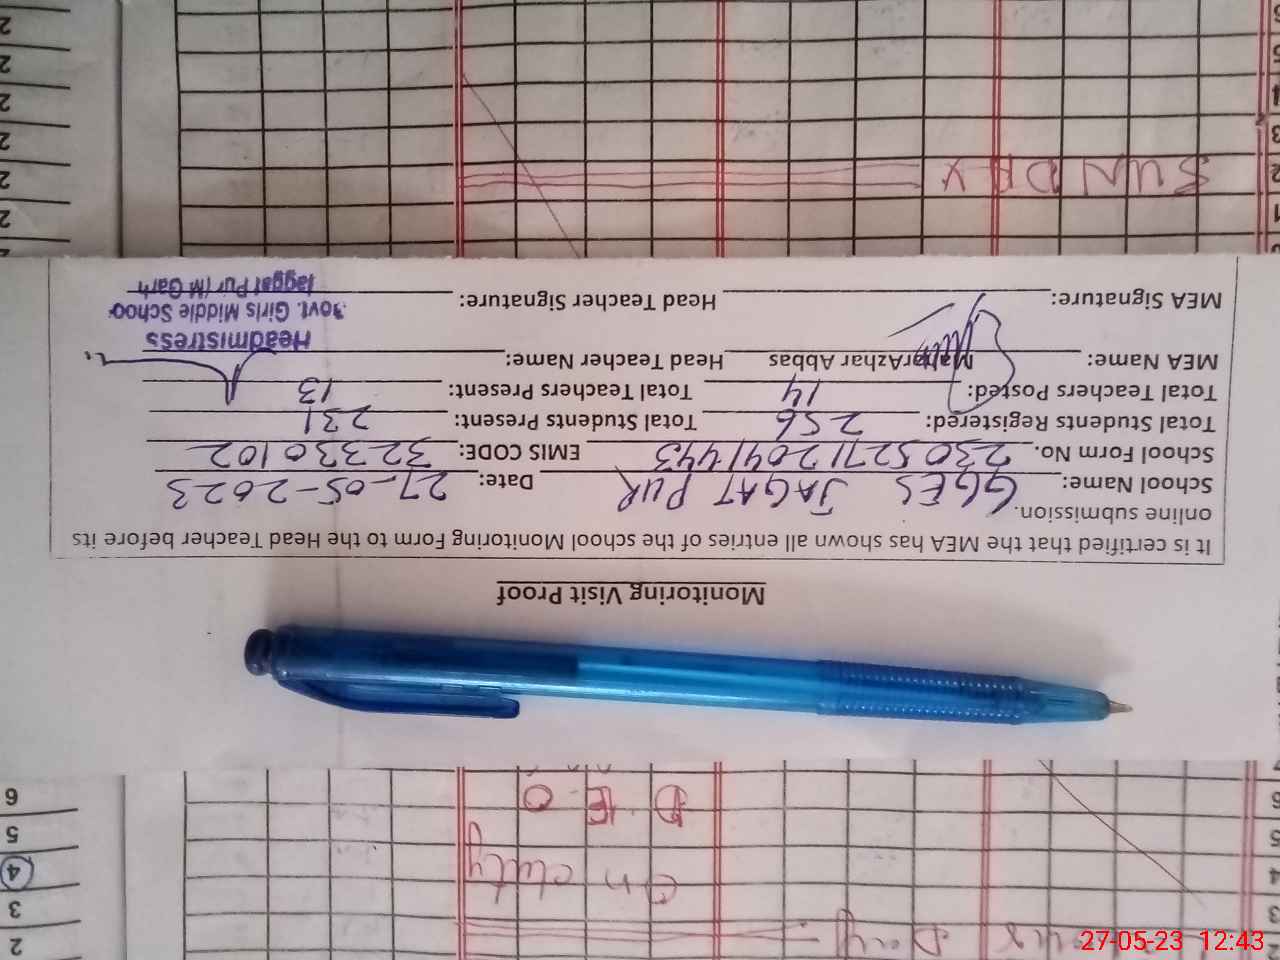 Monitoring Visit Proof
It is certified that the MEA has shown all entries of the school Monitoring Form to the Head Teacher before its
online submission.
School Name: GGES JAGAT PUR Date: 27-05-2023
School Form No. 23052712041443 EMIS CODE: 32330102
Total Students Registered: 256 Total Students Present: 231
Total Teachers Posted: 14 Total Teachers Present: 13
MEA Name: Azhar Abbas Head Teacher Name:
MEA Signature: Head Teacher Signature:
Headmistress
Govt. Girls Middle School
Jaggat Pur (M Garh
SUNDAY
D.E.O
on duty
Day
2
3
4
5
6
27-05-23 12:43